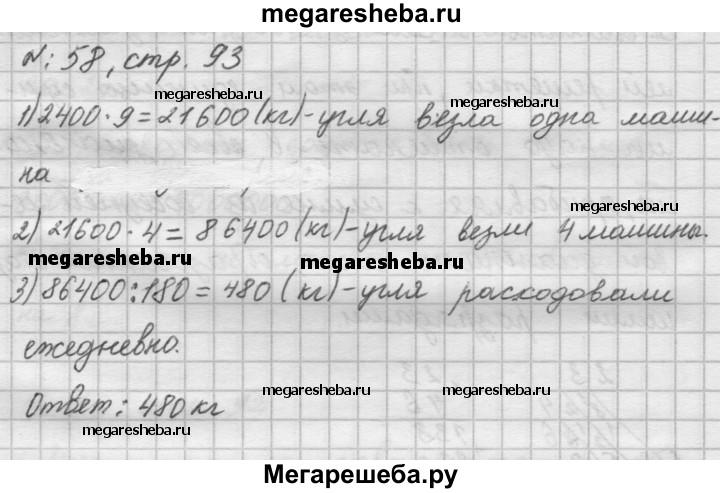 megaresheba.ru
N: 58, стр. 93
megaresheba.ru megaresheba.ru
1) 2400·9=21600(кг)-угля везла одна маши-
на
megaresheba.ru
2) 21600·4=86400(кг)-угля везли 4 машины.
megaresheba.ru megaresheba.ru
3) 86400:180=480(кг)-угля расходовали
ежедневно.
megaresheba.ru megaresheba.ru
Ответ: 480 кг
megaresheba.ru
Мегарешеба.ру